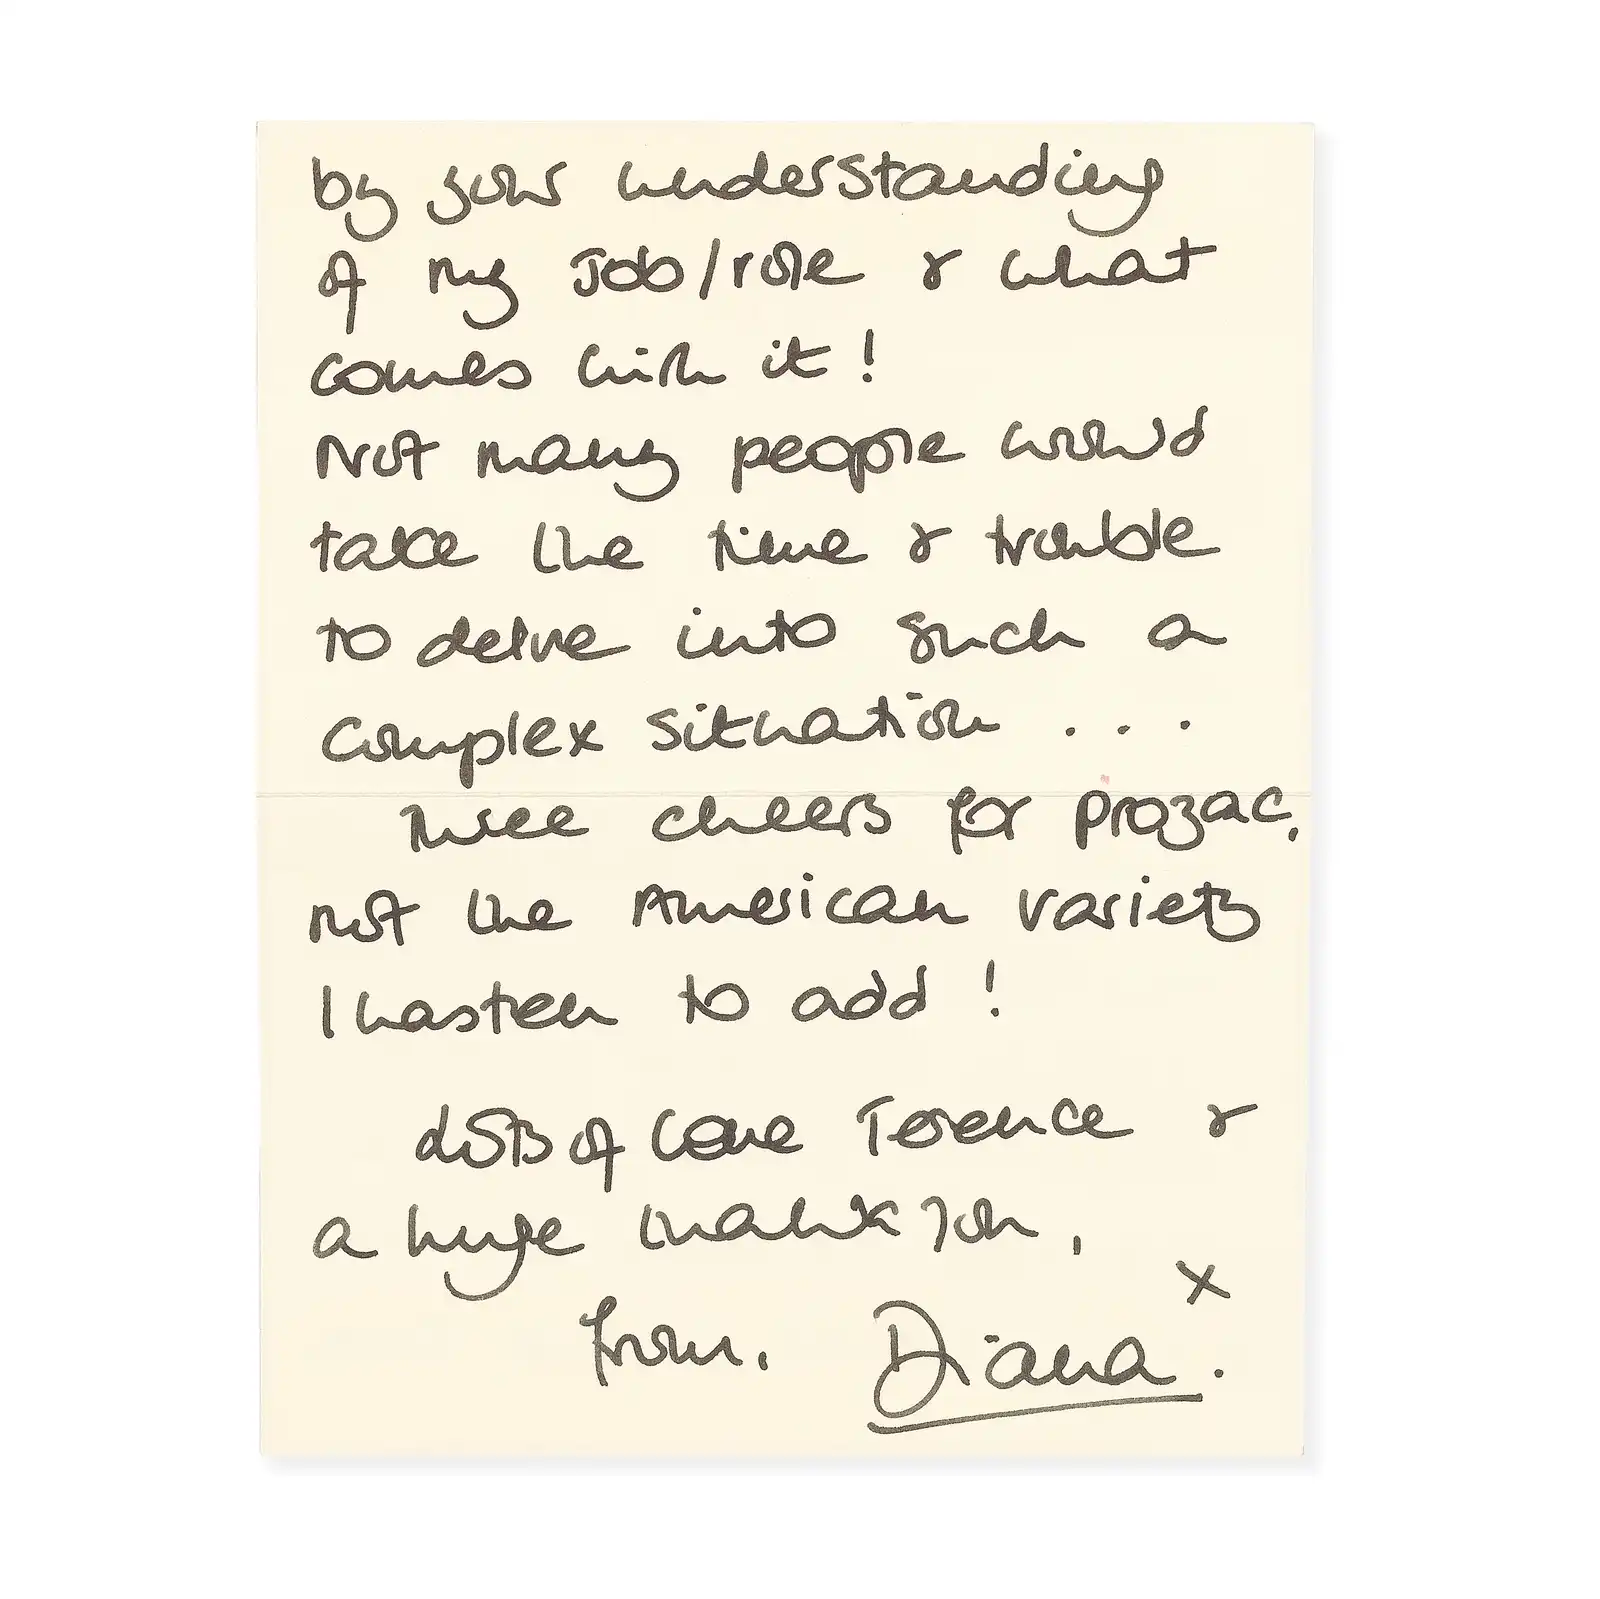 by your understanding
of my Job/role & what
comes with it!
Not many people would
take the time & trouble
to delve into such a
complex situation . . .
Three cheers for Prozac,
not the American variety
I hasten to add!
Lots of love Terence &
a huge thank you,
x
from. Diana.